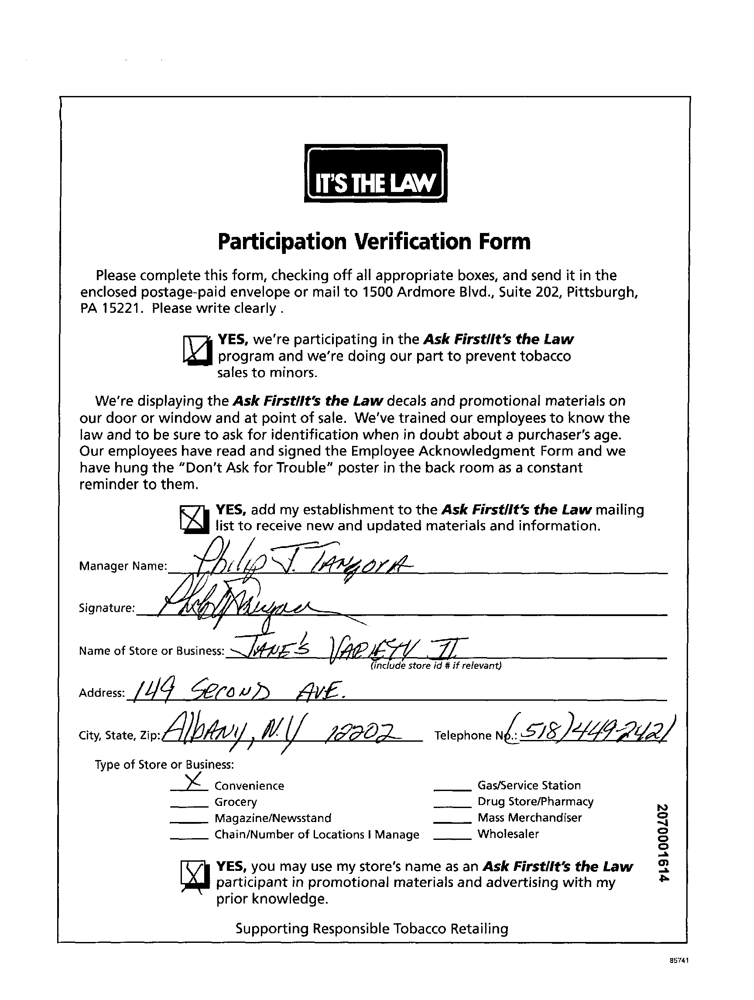 IT'S THE LAW
Participation Verification Form
Please complete this form, checking off all appropriate boxes, and send it in the
enclosed postage-paid envelope or mail to 1500 Ardmore Blvd., Suite 202, Pittsburgh,
PA 15221. Please write clearly .
YES, we're participating in the Ask First/It's the Law
program and we're doing our part to prevent tobacco
sales to minors.
We're displaying the Ask First/It's the Law decals and promotional materials on
our door or window and at point of sale. We've trained our employees to know the
law and to be sure to ask for identification when in doubt about a purchaser's age.
Our employees have read and signed the Employee Acknowledgment Form and we
have hung the "Don't Ask for Trouble" poster in the back room as a constant
reminder to them.
YES, add my establishment to the Ask First/It's the Law mailing
list to receive new and updated materials and information.
Manager Name: Philip J. TANGORA
Signature:
Name of Store or Business: JANE'S VARIETY II
(include store id # if relevant)
Address: 149 SECOND AVE.
City, State, Zip: AlbANY, N.Y 12202 Telephone No.: (518) 449-2421
Type of Store or Business:
X Convenience Gas/Service Station
Grocery Drug Store/Pharmacy
Magazine/Newsstand Mass Merchandiser
Chain/Number of Locations I Manage Wholesaler
2070001614
YES, you may use my store's name as an Ask First/It's the Law
participant in promotional materials and advertising with my
prior knowledge.
Supporting Responsible Tobacco Retailing
85741